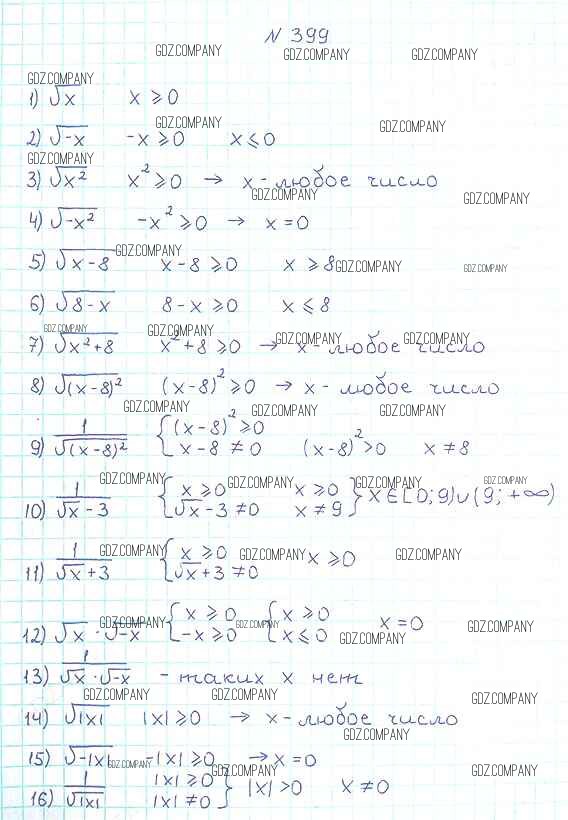 N 399
GDZ.COMPANY GDZ.COMPANY GDZ.COMPANY
GDZ.COMPANY
1) √x x ⩾ 0
GDZ.COMPANY GDZ.COMPANY
2) √-x -x ⩾ 0 x ⩽ 0
GDZ.COMPANY
3) √x² x² ⩾ 0 → x - любое число
GDZ.COMPANY GDZ.COMPANY
4) √-x² -x² ⩾ 0 → x = 0
GDZ.COMPANY
5) √x - 8 x - 8 ⩾ 0 x ⩾ 8 GDZ.COMPANY GDZ.COMPANY
6) √8 - x 8 - x ⩾ 0 x ⩽ 8
GDZ.COMPANY GDZ.COMPANY GDZ.COMPANY GDZ.COMPANY
7) √x² + 8 x² + 8 ⩾ 0 → x - любое число
8) √(x - 8)² (x - 8)² ⩾ 0 → x - любое число
GDZ.COMPANY GDZ.COMPANY GDZ.COMPANY
9) 1/√(x - 8)² { (x - 8)² ⩾ 0 x - 8 ≠ 0 (x - 8)² > 0 x ≠ 8
GDZ.COMPANY GDZ.COMPANY GDZ.COMPANY GDZ.COMPANY
10) 1/√x - 3 { x ⩾ 0 √x - 3 ≠ 0 x ⩾ 0 x ≠ 9 } x ∈ [0; 9) ∪ (9; +∞)
GDZ.COMPANY GDZ.COMPANY GDZ.COMPANY
11) 1/√x + 3 { x ⩾ 0 √x + 3 ≠ 0 x ⩾ 0
GDZ.COMPANY GDZ.COMPANY GDZ.COMPANY
12) √x · √-x { x ⩾ 0 -x ⩾ 0 { x ⩾ 0 x ⩽ 0 x = 0
GDZ.COMPANY
13) 1/√x · √-x - таких x нет
GDZ.COMPANY GDZ.COMPANY GDZ.COMPANY
14) √|x| |x| ⩾ 0 → x - любое число
GDZ.COMPANY
15) √-|x| -|x| ⩾ 0 → x = 0
GDZ.COMPANY GDZ.COMPANY GDZ.COMPANY
16) 1/√|x| |x| ⩾ 0 |x| ≠ 0 } |x| > 0 x ≠ 0